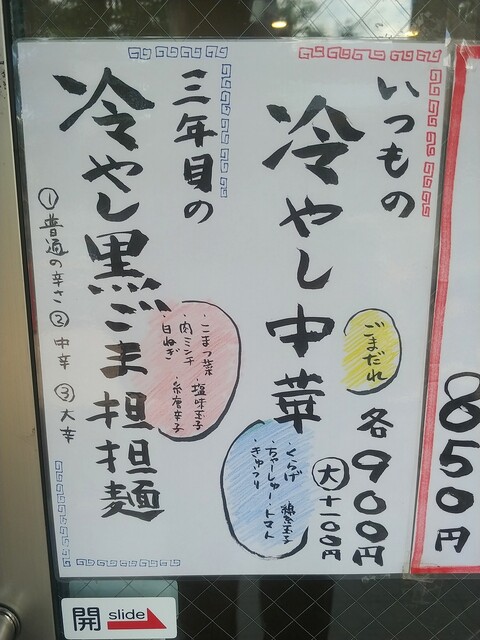 いつもの
冷やし中華
ごまだれ
各900円
大+100円
・くらげ
・錦糸玉子
・ちゃーしゅー・トマト
・きゅうり
三年目の
冷やし黒ごま担担麺
・こまつ菜
・塩味玉子
・肉ミンチ
・糸唐辛子
・白ねぎ
①普通の辛さ ②中辛 ③大辛
850円
開 slide